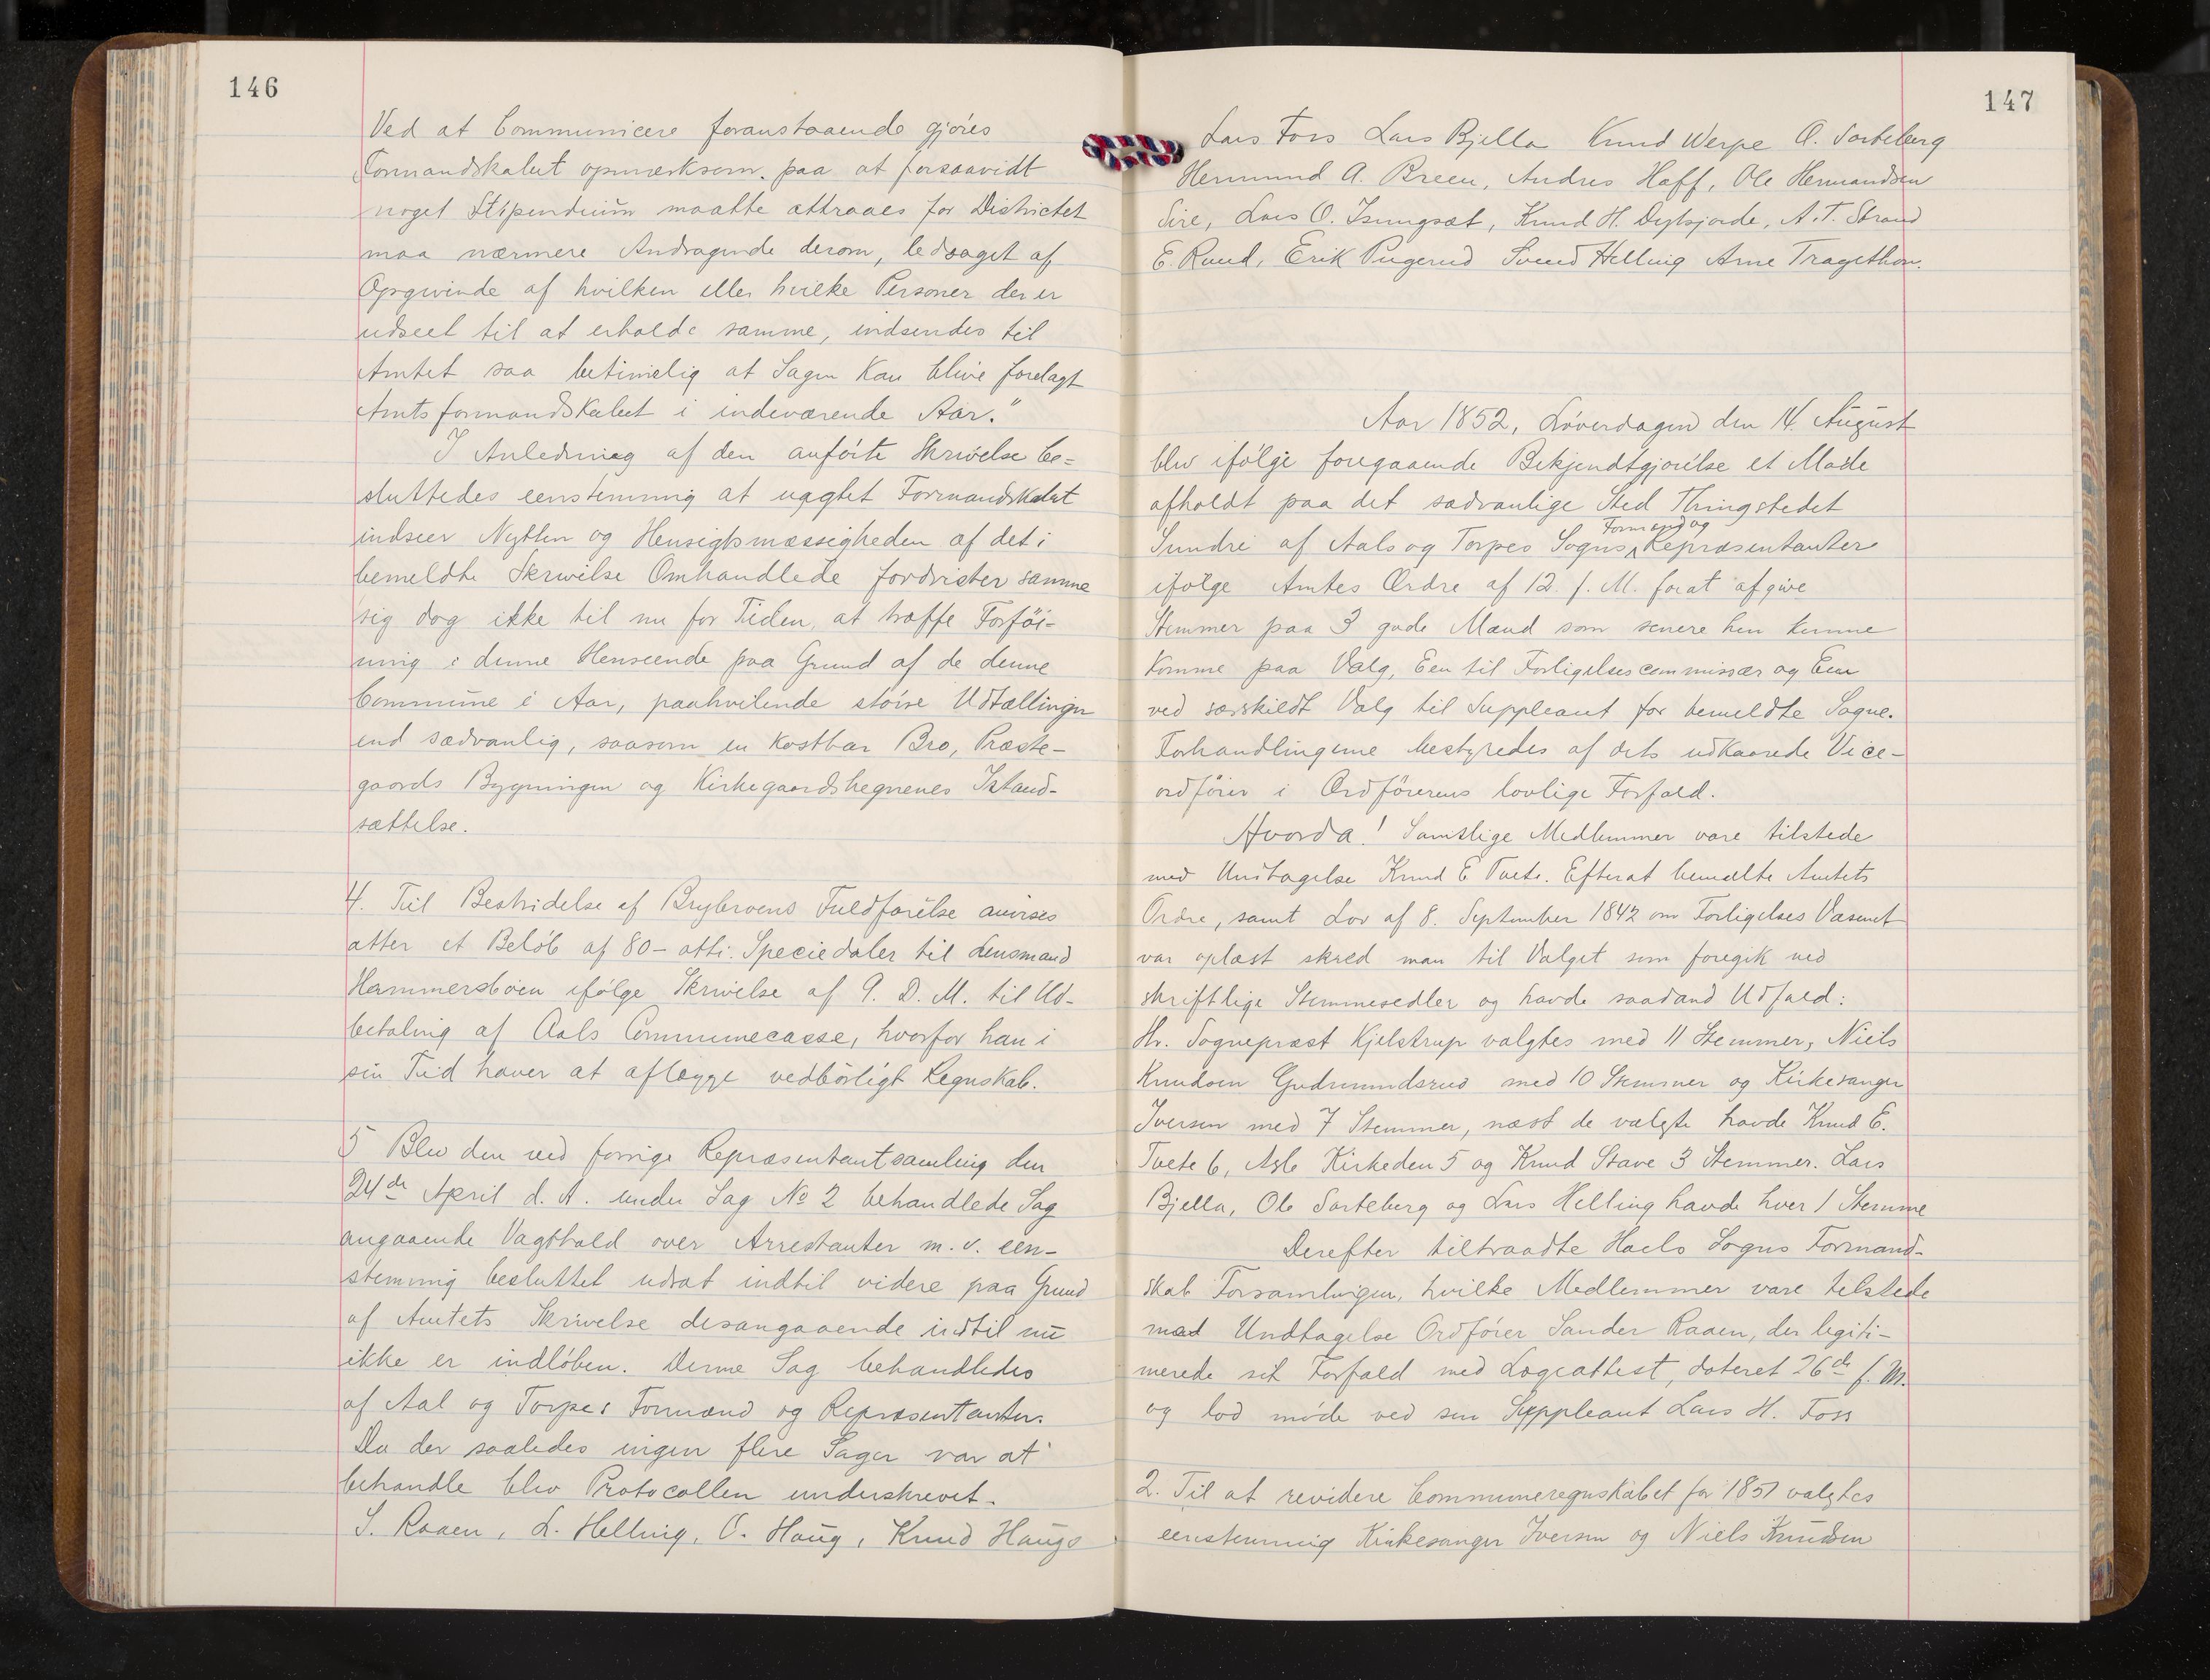 146
Ved at Communicere foranstaaende gjöres
Formandskabet opmærksom paa at forsaavidt
noget Stipendium maatte attraaes for Districtet
maa nærmere Andragende derom, ledsaget af
Opgivende af hvilken eller hvilke Personer der er
udseet til at erholde samme, indsendes til
Amtet saa betimelig at Sagen Kan blive forelagt
Amtsformandskabet i indeværende Aar."
I Anledning af den anförte Skrivelse be=
sluttedes eenstemmig at uagtet Formandskabet
indseer Nytten og Hensigtsmæssigheden af det i
bemeldte Skrivelse Omhandlede fordrister samme
sig dog ikke til nu for Tiden at træffe Forföi-
ning i denne Henseende paa Grund af de denne
Commune i Aar, paahvilende större Udtællinger
end sædvanlig, saasom en Kostbar Bro, Præste-
gaards Bygningen og Kirkegaardshegnenes Istand-
sættelse.
4. Til Bestridelse af Brybroens Fuldförelse anvises
atter et Belöb af 80- otti. Speciedaler til Lensmand
Hammersböen ifölge Skrivelse af 9. D. M. til Ud-
betaling af Aals Communecasse, hvorfor han i
sin Tid haver at aflægge vedbörligt Regnskab.
5 Blev den ved forrige Repræsentantsamling den
24de April d. A. under Sag No 2 behandlede Sag
angaaende Vagthold over Arrestanter m. v. een-
stemmig besluttet udsat indtil videre paa Grund
af Amtets Skrivelse desangaaende indtil nu
ikke er indlöben. Denne Sag behandledes
af Aal og Torpes Formænd og Repræsentanter.
Da der saaledes ingen flere Sager var at
behandle blev Protocollen underskrevet.
S. Raaen, L. Helling, O. Haug, Knud Hauge
147
Lars Foss Lars Bjella Knud Werpe O. Sorteberg
Hermund A. Breen, Andres Hoff, Ole Hermandsen
Sire, Lars O. Isungset, Knud H. Dybsjorde, A. T. Strand
E. Ruud, Erik Pugerud Svend Helling Arne Tragethon.
Aar 1852, Löverdagen den 14. August
blev ifölge foregaaende Bekjendtgjörelse et Möde
afholdt paa det sædvanlige Sted Thingstedet
Sundre af Aals og Torpes Sogns Formænd og Repræsentanter
ifölge Amtes Ordre af 12. f. M. forat afgive
Stemmer paa 3 gode Mænd som senere hen kunne
Komme paa Valg, Een til Forligelsescommissær og Een
ved særskildt Valg til Suppleant for bemeldte Sogne.
Forhandlingerne bestyredes af dets udkaarede Vice-
ordförer i Ordförerens lovlige Forfald.
Hvorda! Samtlige Medlemmer vare tilstede
med Undtagelse Knud E Tvete. Efterat bemeldte Amtets
Ordre, samt Lov af 8. September 1842 om Forligelses Væsenet
var oplæst skred man til Valget som foregik ved
skriftlige Stemmesedler og havde saadand Udfald:
Hr. Sognepræst Kjelstrup valgtes med 11 Stemmer, Niels
Knudsen Gudmundsrud med 10 Stemmer og Kirkesanger
Iversen med 7 Stemmer, næst de valgte havde Knud E.
Tvete 6, Asle Kirkeden 5 og Knud Stave 3 Stemmer. Lars
Bjella, Ole Sorteberg og Lars Helling havde hver 1 Stemme
Derefter tiltraadte Hols Sogns Formand-
skab Forsamlingen, hvilke Medlemmer vare telstede
med Undtagelse Ordförer Sander Raaen, der legiti-
merede sit Forfald med Lægeattest, dateret 26de f. M.
og lod möde ved sin Suppleant Lars H. Foss
2. Til at revidere Communeregnskabet for 1851 valgtes
eenstemmig Kirkesanger Iversen og Niels Knudsen